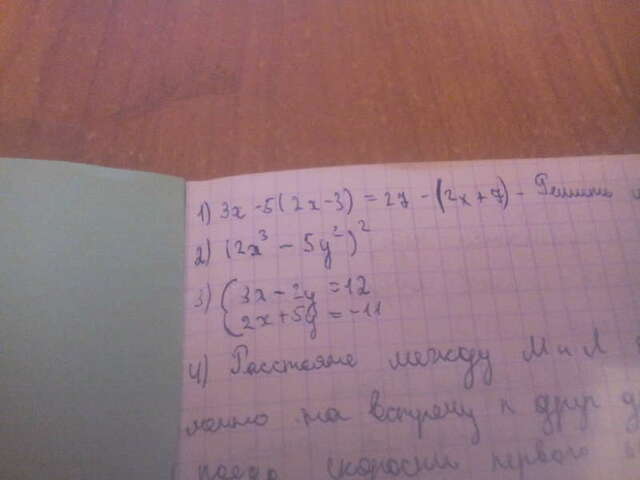 1) 3x - 5(2x-3) = 27 - (2x+7) - Решить
2) (2x³ - 5y²)²
3) { 3x - 2y = 12
2x + 5y = -11
4) Расстояне между М и Л
на встречу к друг
скорости первого